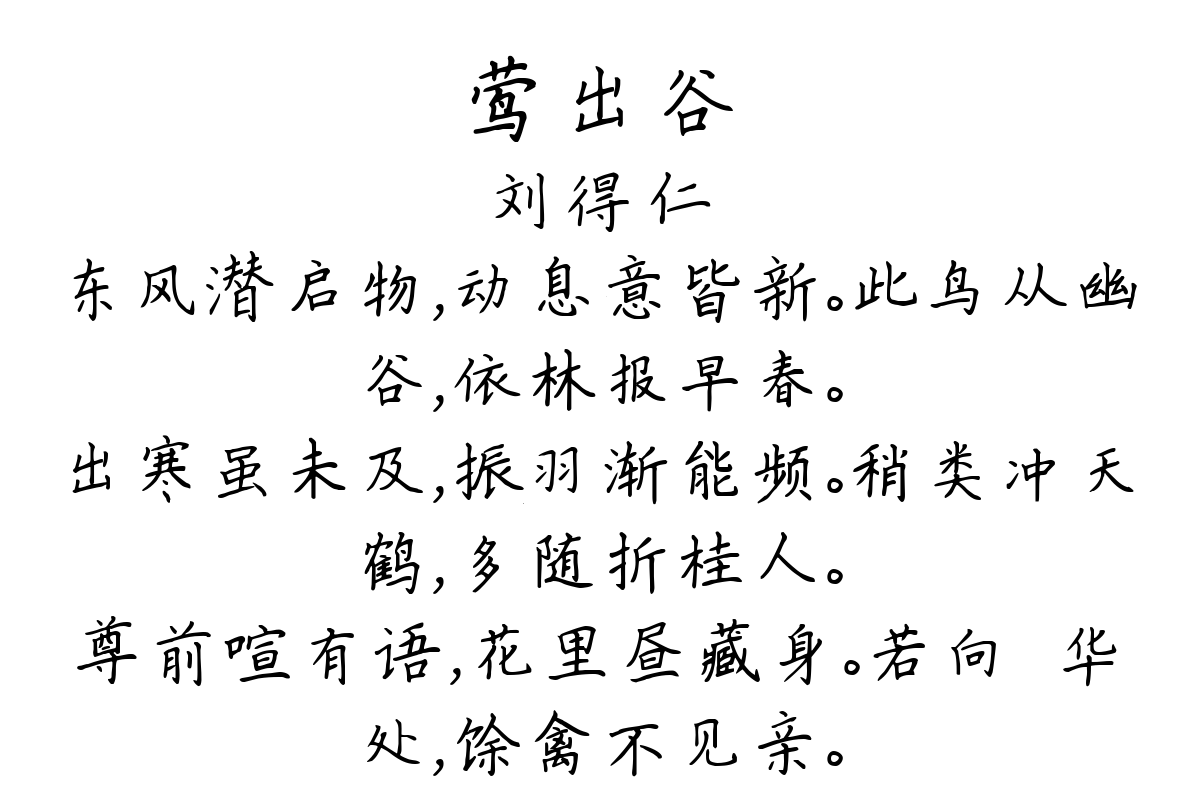 莺出谷
刘得仁
东风潜启物,动息意皆新。此鸟从幽
谷,依林报早春。
出寒虽未及,振羽渐能频。稍类冲天
鹤,多随折桂人。
尊前喧有语,花里昼藏身。若向 华
处,馀禽不见亲。